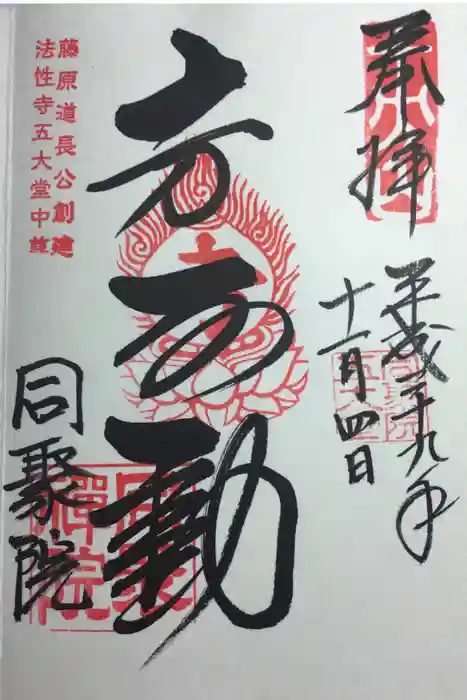 奉拝
平成二十九年
十一月四日
十万不動
藤原道長公創建
法性寺五大堂中尊
同聚院